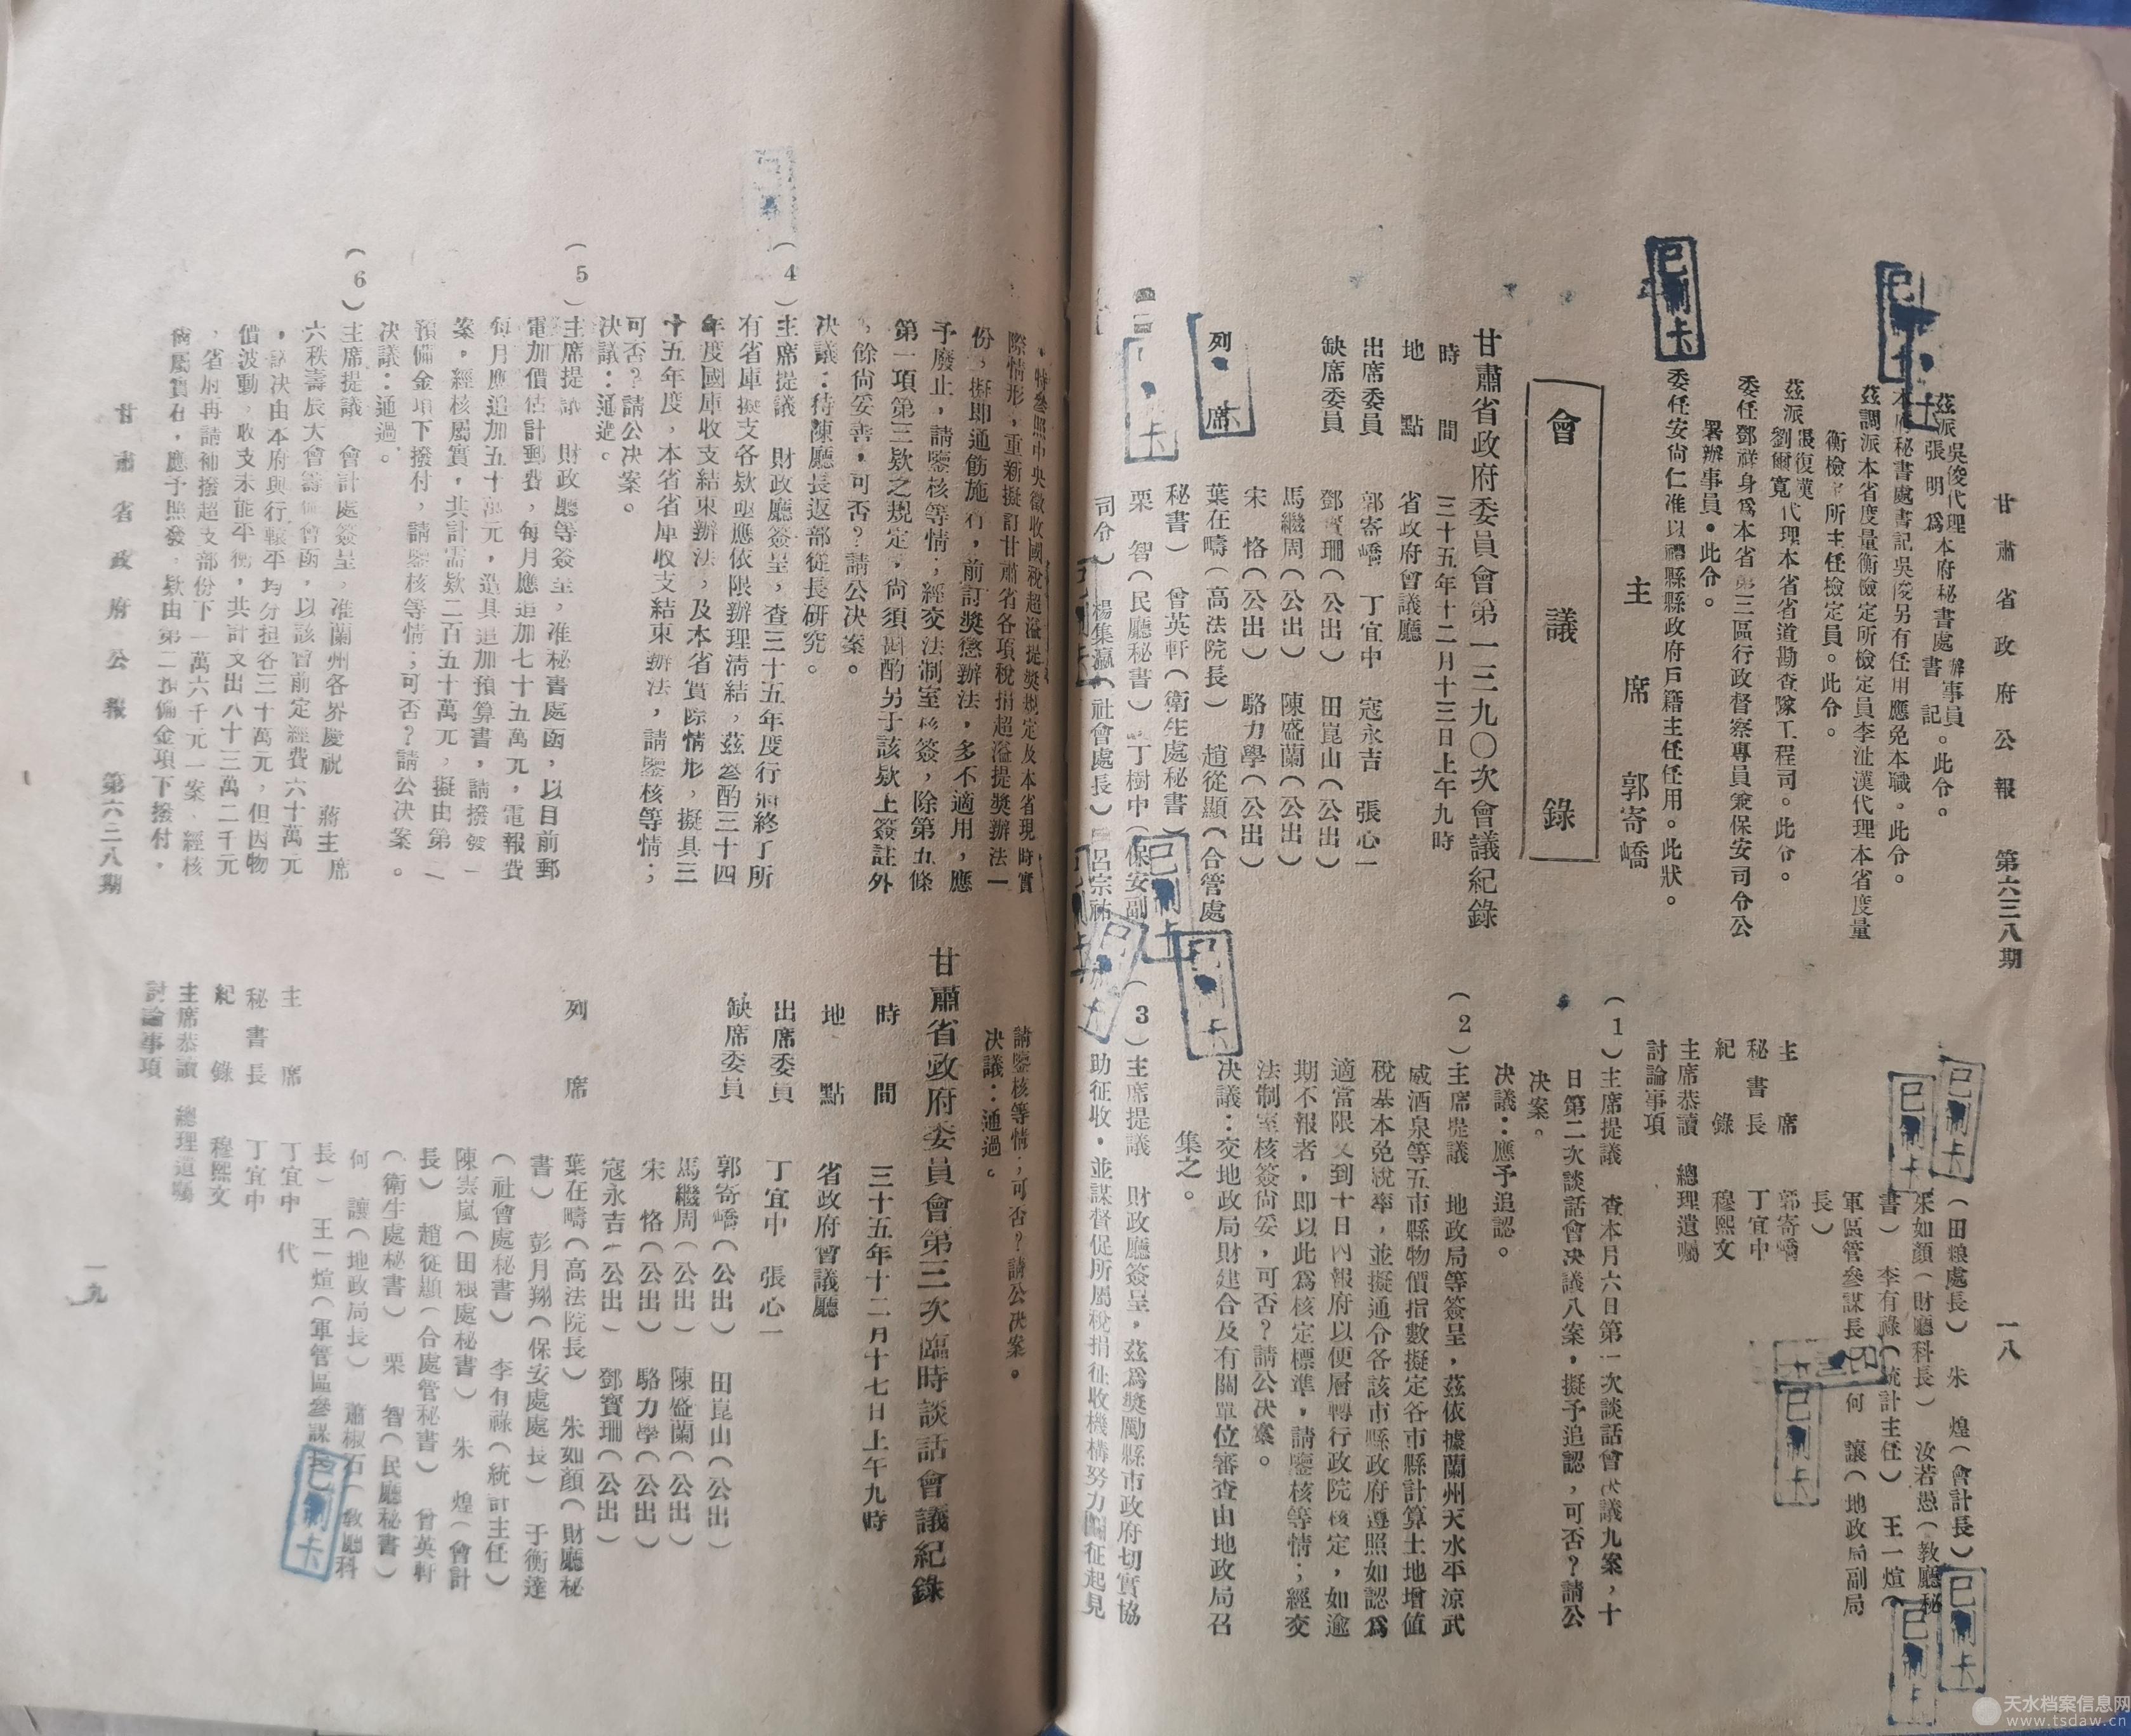 甘肅省政府公報　第六三八期
一八
茲派吳俊代理本府秘書處辦事員。此令。
張明為書記
本府秘書處書記吳俊另有任用應免本職。此令。
茲調派本省度量衡檢定所檢定員李沚漢代理本省度量
衡檢定所主任檢定員。此令。
茲派張復漢代理本省省道勘查隊工程司。此令。
劉爾寬
委任鄧祥身為本省第三區行政督察專員兼保安司令公
署辦事員。此令。
委任安尙仁准以禮縣縣政府戶籍主任任用。此狀。
主　席　郭寄嶠
會議錄
甘肅省政府委員會第一三九〇次會議紀錄
時　間　三十五年十二月十三日上午九時
地　點　省政府會議廳
出席委員　郭寄嶠　丁宜中　寇永吉　張心一
缺席委員　鄧寶珊（公出）　田崑山（公出）
馬繼周（公出）　陳盛蘭（公出）
宋　恪（公出）　駱力學（公出）
列　席　葉在疇（高法院長）　趙從顯（合管處
秘書）　曾英軒（衛生處秘書）
栗　智（民廳秘書）　丁樹中（保安副
司令）　楊集瀛（社會處長）　呂宗祐
（田粮處長）　朱　煌（會計長）
朱如顏（財廳科長）　汝若愚（教廳秘
書）　李有祿（統計主任）　王一煊（
軍區管參謀長）　何　讓（地政局副局
長）
主　席　郭寄嶠
秘書長　丁宜中
紀　錄　穆熙文
主席恭讀　總理遺囑
討論事項
（1）主席提議　查本月六日第一次談話會決議九案，十
日第二次談話會決議八案，擬予追認，可否？請公
決案。
決議：應予追認。
（2）主席提議　地政局等簽呈，茲依據蘭州天水平涼武
威酒泉等五市縣物價指數擬定各市縣計算土地增值
稅基本免稅率，並擬通令各該市縣政府遵照如認為
適當限文到十日內報府以便層轉行政院核定，如逾
期不報者，即以此為核定標準，請鑒核等情；經交
法制室核簽尙妥，可否？請公決案。
決議：交地政局財建合及有關單位審查由地政局召
集之。
（3）主席提議　財政廳簽呈，茲為獎勵縣市政府切實協
助征收，並謀督促所屬稅捐征收機構努力關征起見
，特參照中央徵收國稅超溢提獎規定及本省現時實
際情形，重新擬訂甘肅省各項稅捐超溢提獎辦法一
份，擬即通飭施行，前訂獎懲辦法，多不適用，應
予廢止，請鑒核等情；經交法制室核簽，除第五條
第一項第三欵之規定，尙須斟酌另于該欵上簽註外
，餘尙妥善，可否？請公決案。
決議：待陳廳長返部從長研究。
（4）主席提議　財政廳簽呈，查三十五年度行將終了所
有省庫撥支各欵亟應依限辦理淸結，茲參酌三十四
年度國庫收支結束辦法，及本省實際情形，擬具三
十五年度，本省省庫收支結束辦法，請鑒核等情；
可否？請公決案。
決議：通過。
（5）主席提議　財政廳等簽呈，准秘書處函，以目前郵
電加價估計郵費，每月應追加七十五萬元，電報費
每月應追加五十萬元，造具追加預算書，請撥發一
案，經核屬實，共計需欵二百五十萬元，擬由第二
預備金項下撥付，請鑒核等情；可否？請公決案。
決議：通過。
（6）主席提議　會計處簽呈，准蘭州各界慶祝　蔣主席
六秩壽辰大會籌備會函，以該會前定經費六十萬元
，議決由本府與行轅平均分担各三十萬元，但因物
價波動，收支未能平衡，共計支出八十三萬二千元
，省府再請補撥超支部份下一萬六千元一案，經核
倘屬實在，應予照發，欵由第二預備金項下撥付，
請鑒核等情，可否？請公決案。
決議：通過。
甘肅省政府委員會第三次臨時談話會議紀錄
時　間　三十五年十二月十七日上午九時
地　點　省政府會議廳
出席委員　丁宜中　張心一
缺席委員　郭寄嶠（公出）　田崑山（公出）
馬繼周（公出）　陳盛蘭（公出）
宋　恪（公出）　駱力學（公出）
寇永吉（公出）　鄧寶珊（公出）
列　席　葉在疇（高法院長）　朱如顏（財廳秘
書）　彭月翔（保安處處長）　于衡達
（社會處秘書）　李有祿（統計主任）
陳雲嵐（田粮處秘書）　朱　煌（會計
長）　趙從顯（合處管秘書）　曾英軒
（衛生處秘書）　栗　智（民廳秘書）
何　讓（地政局長）　蕭椒石（教廳科
長）　王一煊（軍管區參謀長）
主　席　丁宜中　代
秘書長　丁宜中
紀　錄　穆熙文
主席恭讀　總理遺囑
討論事項
甘肅省政府公報　第六三八期
一九
已制卡
已制卡
已制卡
已制卡
已制卡
已制卡
已制卡
天水档案信息网
www.tsdaw.cn